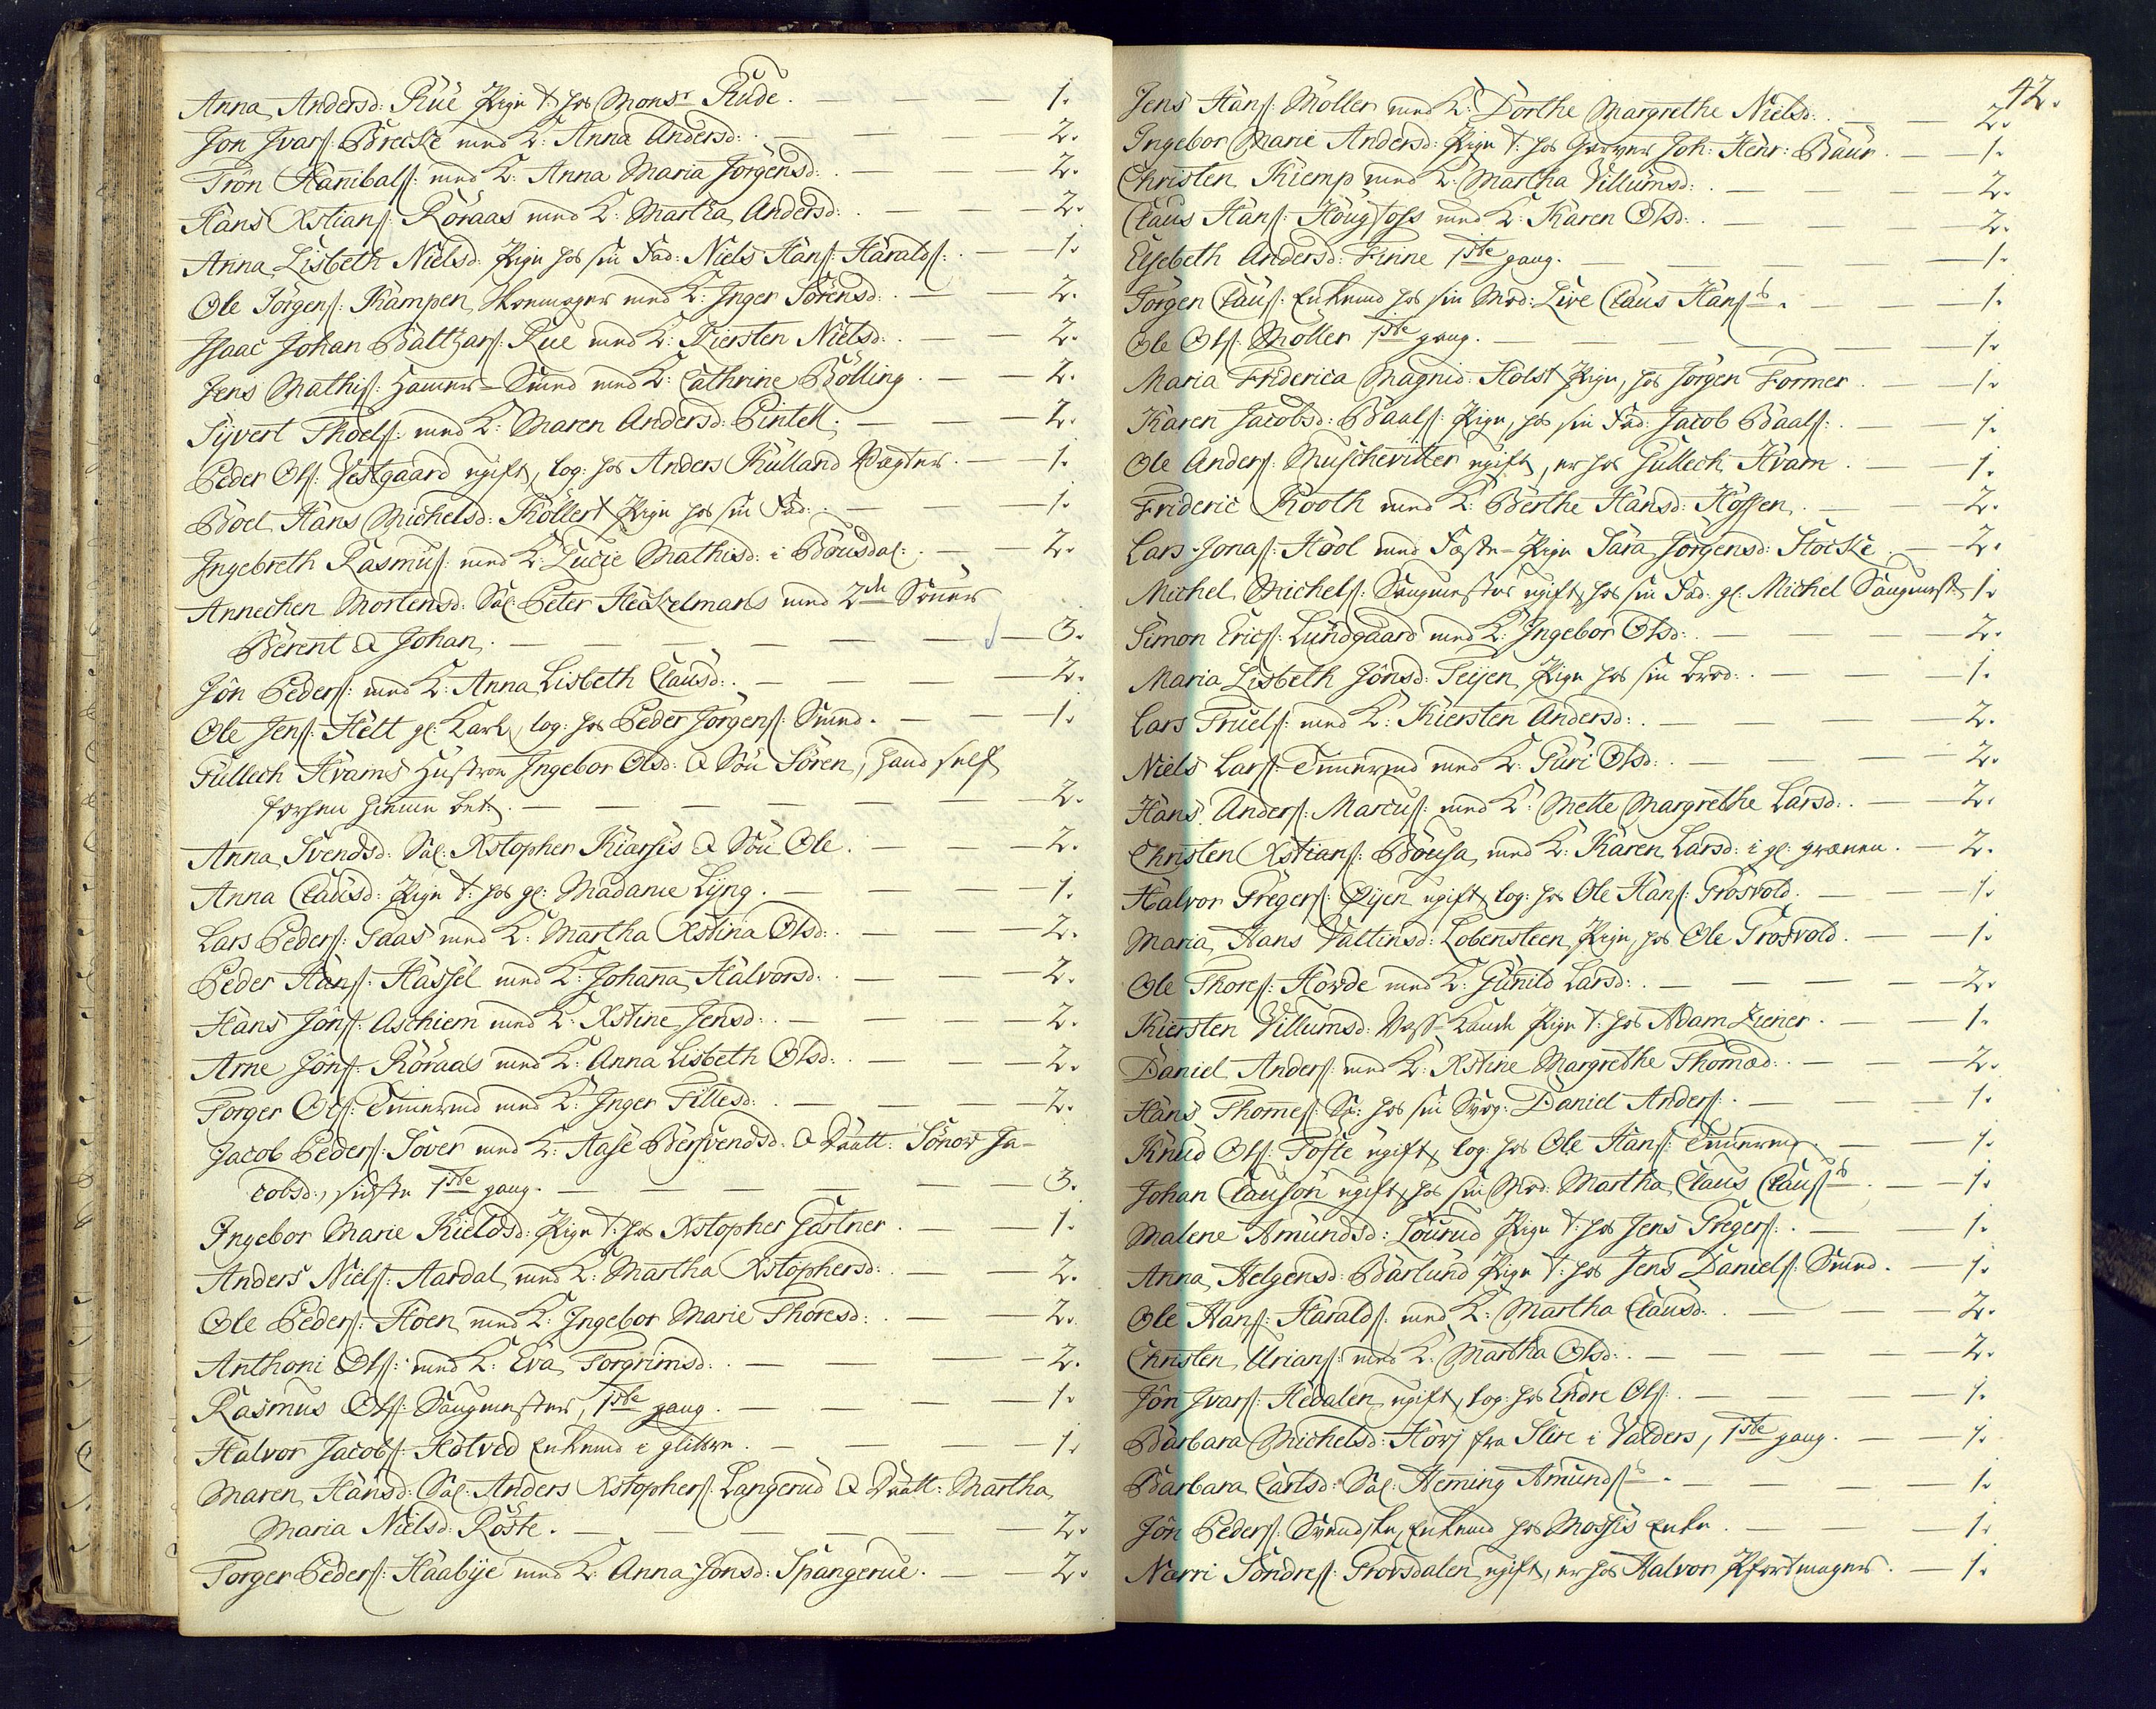 Anna Andersd: Rüe Pige t: hos Monsr Rude. — 1.
Jon Ivars: Brecke med K: Anna Andersd: — 2.
Trön Hanibals: med K: Anna Maria Jörgensd: — 2.
Hans Xstians: Röraas med K: Martha Andersd: — 2.
Anna Lisbeth Nielsd: Pige hos sin Fad: Niels Hans: Haralds: — 1.
Ole Jörgens: Kampen, Skoemager med K: Inger Sörensd: — 2.
Isaac Johan Baltzars: Rue med K: Kiersten Nielsd: — 2.
Jens Mathis: Hammer-Smed med K: Cathrine Bölling. — 2.
Syvert Thoels: med K: Maren Andersd: Pintell. — 2.
Peder Ols: Vestgaard ugift, log: hos Anders Rülland Vegter. — 1.
Boel Hans Michelsd: Köllert Pige hos sin Fad: — 1.
Ingebreth Rasmus: med K: Lucie Mathisd: i Bousdal: — 2.
Annechen Mortensd: Sal: Peter Heckelmans med 2de Sönner
Berent & Johan. — 3.
Jön Peders: med K: Anna Lisbeth Clausd: — 2.
Ole Jens: Hett gl: Karl, log: hos Peder Jörgens: Smed. — 1.
Gullech Hvams Hustroe Ingebor Olsd: & Sön Sören, hand self
forhen henne bet: — 2.
Anna Svendsd: Sal: Xstopher Kiarsis & Sön Ole. — 2.
Anna Clausd: Pige t: hos gl: Madame Lyng. — 1.
Lars Peders: Gaas med K: Martha Xstina Olsd: — 2.
Peder Hans: Hassel med K: Johanna Halvorsd: — 2.
Hans Jöns: Aschiem med K: Xstine Jensd: — 2.
Arne Jöns: Röraas med K: Anna Lisbeth Olsd: — 2.
Torger Ols: Tömmermd med K: Inger Tillesd: — 2.
Jacob Peders: Sover med K: Aase Bersvendsd: & Daatt: Sönov Ja-
cobsd:, sidste 1ste gang. — 3.
Ingebor Marie Kieldsd: Pige t: hos Xstopher Gartner. — 1.
Anders Niels: Aardal, med K: Martha Xstophersd: — 2.
Ole Peders: Hoen, med K: Ingebor Marie Thoresd: — 2.
Anthoni Ols: med K: Eva Torgrimsd: — 2.
Rasmus Ols: Saugmester, 1ste gang. — 1.
Halvor Jacobs: Hotved Enkemd i glitten. — 1.
Maren Hansd: Sal: Anders Xstophers: Langerud & Daatt: Martha
Maria Nielsd: Röste. — 2.
Torger Peders: Haabye med K: Anna Jonsd: Spangerue. — 2.
42.
Jens Hans: Möller med K: Dorthe Margrethe Nielsd: — 2.
Ingebor Marie Andersd: Pige t: hos Garver Joh: Henr: Baur. — 1.
Christen Kiemp med K: Martha Villumsd: — 2.
Claus Hans: Hougfoss med K: Karen Olsd: — 2.
Elsebeth Andersd: Finne 1ste gang. — 1.
Jörgen Claus: Enkemd hos sin Mod: Live Claus Hans:s. — 1.
Ole Ols: Möller 1ste gang. — 1.
Maria Friderica Magnid: Holst Pige, hos Jörgen Former. — 1.
Karen Jacobsd: Baals: Pige, hos sin Fad: Jacob Baals: — 1.
Ole Anders: Muschevitter ugift, er hos Gullech Hvam. — 1.
Frideric Rooth med K: Berthe Hansd: Hoffen. — 2.
Lars Jonas: Hool med Feste-Pige Sara Jörgensd: Stocke — 2.
Michel Michels: Saugmester ugift, hos sin Fad: gl: Michel Saugmest: — 1.
Simon Erics: Lundgaard med K: Ingebor Olsd: — 2.
Maria Lisbeth Jönsd: Teyen, Pige hos sin brod: — 1.
Lars Truels: med K: Kiersten Andersd: — 2.
Niels Lars: Tömmermd med K: Guri Olsd: — 2.
Hans Anders: Marcus: med K: Mette Margrethe Larsd: — 2.
Christen Xstians: Bousa, med K: Karen Larsd: i gl: grænen. — 2.
Halvor Gregers: Øyen ugift, log: hos Ole Hans: Grosvold. — 1.
Maria Hans Valtinsd: Lobensteen, Pige, hos Ole Grosvold. — 1.
Ole Thores: Hovde med K: Gunild Larsd: — 2.
Kiersten Villumsd: Pige t: hos Adam Ziener. — 1.
Daniel Anders: med K: Xstine Margrethe Thomæd: — 2.
Hans Thomes: hos sin Svog: Daniel Anders: — 1.
Knud Ols: Tofte ugift, log: hos Ole Hans: Tömmermd. — 1.
Johan Clausön ugift, hos sin Mod: Martha Claus Claus:s. — 1.
Malene Amundsd: Lourud Pige t: hos Jens Gregers: — 1.
Anna Helgensd: Barlund Pige t: hos Jens Daniels: Smed. — 1.
Ole Hans: Haralds: med K: Martha Clausd: — 2.
Christen Urians: med K: Martha Olsd: — 2.
Jön Ivars: Hedalen ugift, log: hos Endre Ols: — 1.
Barbara Michelsd: Hovj fra Slire i Valders, 1ste gang. — 1.
Barbara Carlsd: Sal: Heming Amunds:s. — 1.
Jön Peders: Svendske, Enkemd hos Mossis Enke. — 1.
Narri Söndres: Grovsdalen ugift, er hos Halvor Pfortmager. — 1.